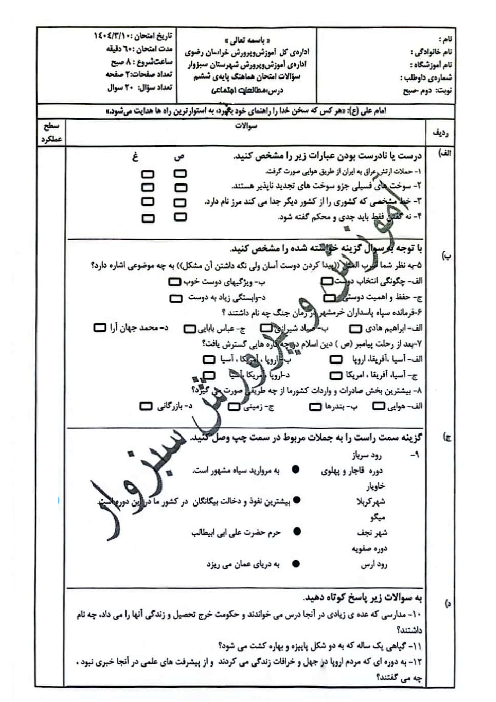 نام :
نام خانوادگی :
نام آموزشگاه :
شماره‌ی داوطلب :
نوبت: دوم -صبح
« باسمه تعالی »
اداره‌ی کل آموزش‌وپرورش خراسان رضوی
اداره‌ی آموزش‌وپرورش شهرستان سبزوار
سؤالات امتحان هماهنگ پایه‌ی ششم
درس:مطالعات اجتماعی
تاریخ امتحان: ۱۴۰۴/۳/۱۰
مدت امتحان: ۶۰ دقیقه
ساعت‌شروع : ۸ صبح
تعداد صفحات: ۲ صفحه
تعداد سؤال: ۲۰ سوال
امام علی (ع): «هر کس که سخن خدا را راهنمای خود بگیرد، به استوارترین راه ها هدایت می‌شود.»
ردیف
سوالات
سطح عملکرد
الف)
درست یا نادرست بودن عبارات زیر را مشخص کنید.
ص
غ
۱- حملات ارتش عراق به ایران از طریق هوایی صورت گرفت.
۲- سوخت های فسیلی جزو سوخت های تجدید ناپذیر هستند.
۳- خط مشخصی که کشوری را از کشور دیگر جدا می کند مرز نام دارد.
۴- نه گفتن فقط باید جدی و محکم گفته شود.
ب)
با توجه به سوال گزینه خواسته شده را مشخص کنید.
۵-به نظر شما ضرب المثل ((پیدا کردن دوست آسان ولی نگه داشتن آن مشکل)) به چه موضوعی اشاره دارد؟
الف- چگونگی انتخاب دوست
ب- ویژگیهای دوست خوب
ج- حفظ و اهمیت دوستی
د-وابستگی زیاد به دوست
۶-فرمانده سپاه پاسداران خرمشهر در زمان جنگ چه نام داشت ؟
الف- ابراهیم هادی
ب- صیاد شیرازی
ج- عباس بابایی
د- محمد جهان آرا
۷-بعد از رحلت پیامبر (ص ) دین اسلام در چه قاره هایی گسترش یافت؟
الف- آسیا ،آفریقا، اروپا
ب- اروپا ، آمریکا ، آسیا
ج- آسیا، آفریقا ، امریکا
د-اروپا ، امریکا ، آسیا
۸- بیشترین بخش صادرات و واردات کشورما از چه طریقی صورت می گیرد؟
الف- هوایی
ب- بندرها
ج- زمینی
د- بازرگانی
ج)
گزینه سمت راست را به جملات مربوط در سمت چپ وصل کنید.
۹-
رود سرباز
دوره قاجار و پهلوی
به مروارید سیاه مشهور است.
خاویار
شهرکربلا
بیشترین نفوذ و دخالت بیگانگان در کشور ما در این دوره است.
میگو
شهر نجف
حرم حضرت علی ابی ابیطالب
دوره صفویه
رود ارس
به دریای عمان می ریزد
د)
به سوالات زیر پاسخ کوتاه دهید.
۱۰- مدارسی که عده ی زیادی در آنجا درس می خواندند و حکومت خرج تحصیل و زندگی آنها را می داد، چه نام
داشتند؟
۱۱- گیاهی یک ساله که به دو شکل پاییزه و بهاره کشت می شود؟
۱۲- به دوره ای که مردم اروپا در جهل و خرافات زندگی می کردند و از پیشرفت های علمی در آنجا خبری نبود ،
چه می گفتند؟
آموزش و پرورش سبزوار